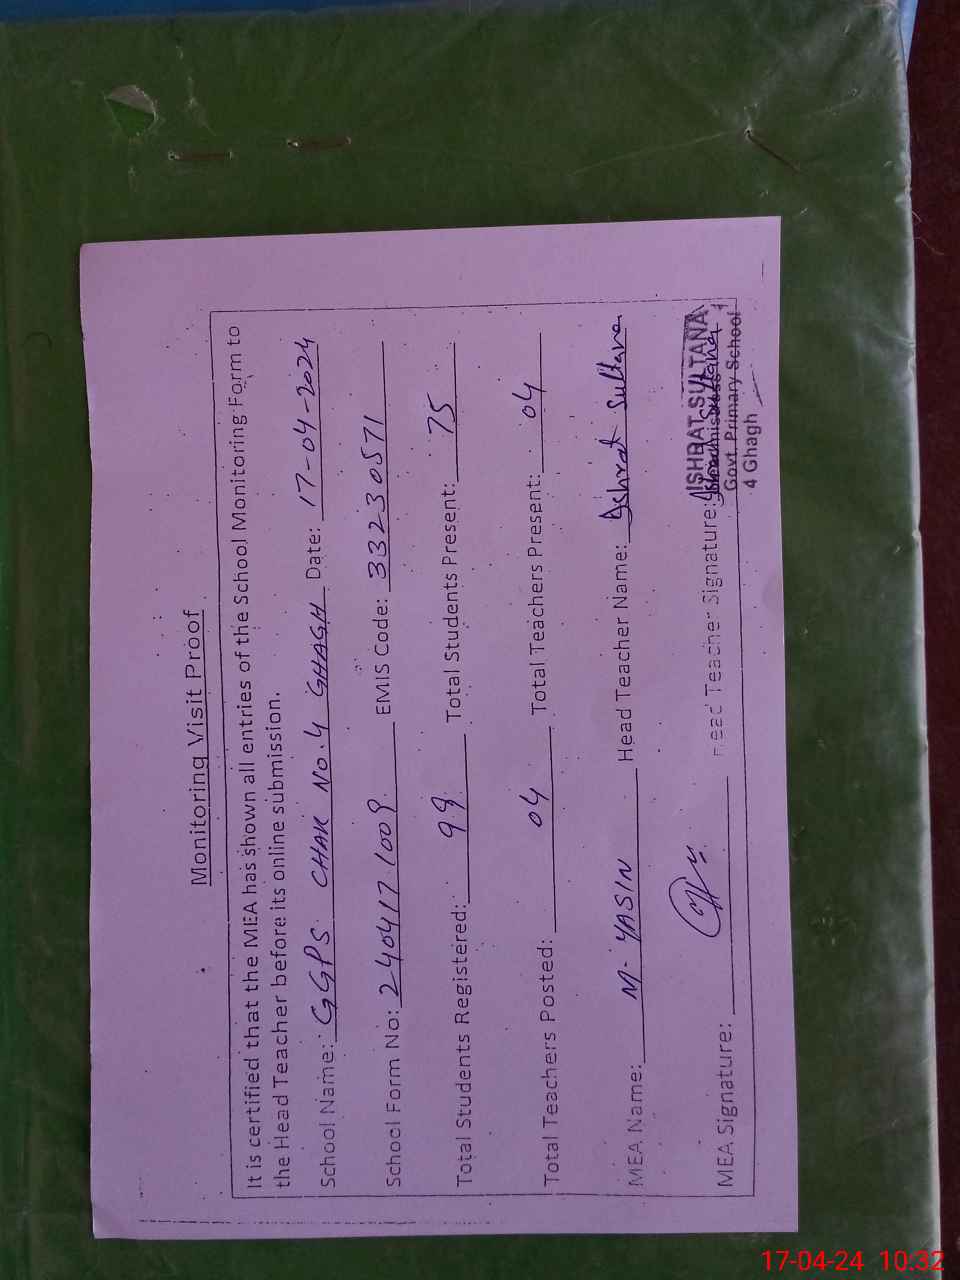 Monitoring Visit Proof
It is certified that the MEA has shown all entries of the School Monitoring Form to
the Head Teacher before its online submission.
School Name: GGPS CHAK No.4 GHAGH Date: 17-04-2024
School Form No: 240417 1009 EMIS Code: 33230571
Total Students Registered: 99 Total Students Present: 75
Total Teachers Posted: 04 Total Teachers Present: 04
MEA Name: M. YASIN Head Teacher Name: Ishrat Sultana
MEA Signature: Head Teacher Signature:
ISHRAT SULTANA
Govt. Primary School
4 Ghagh
17-04-24 10:32